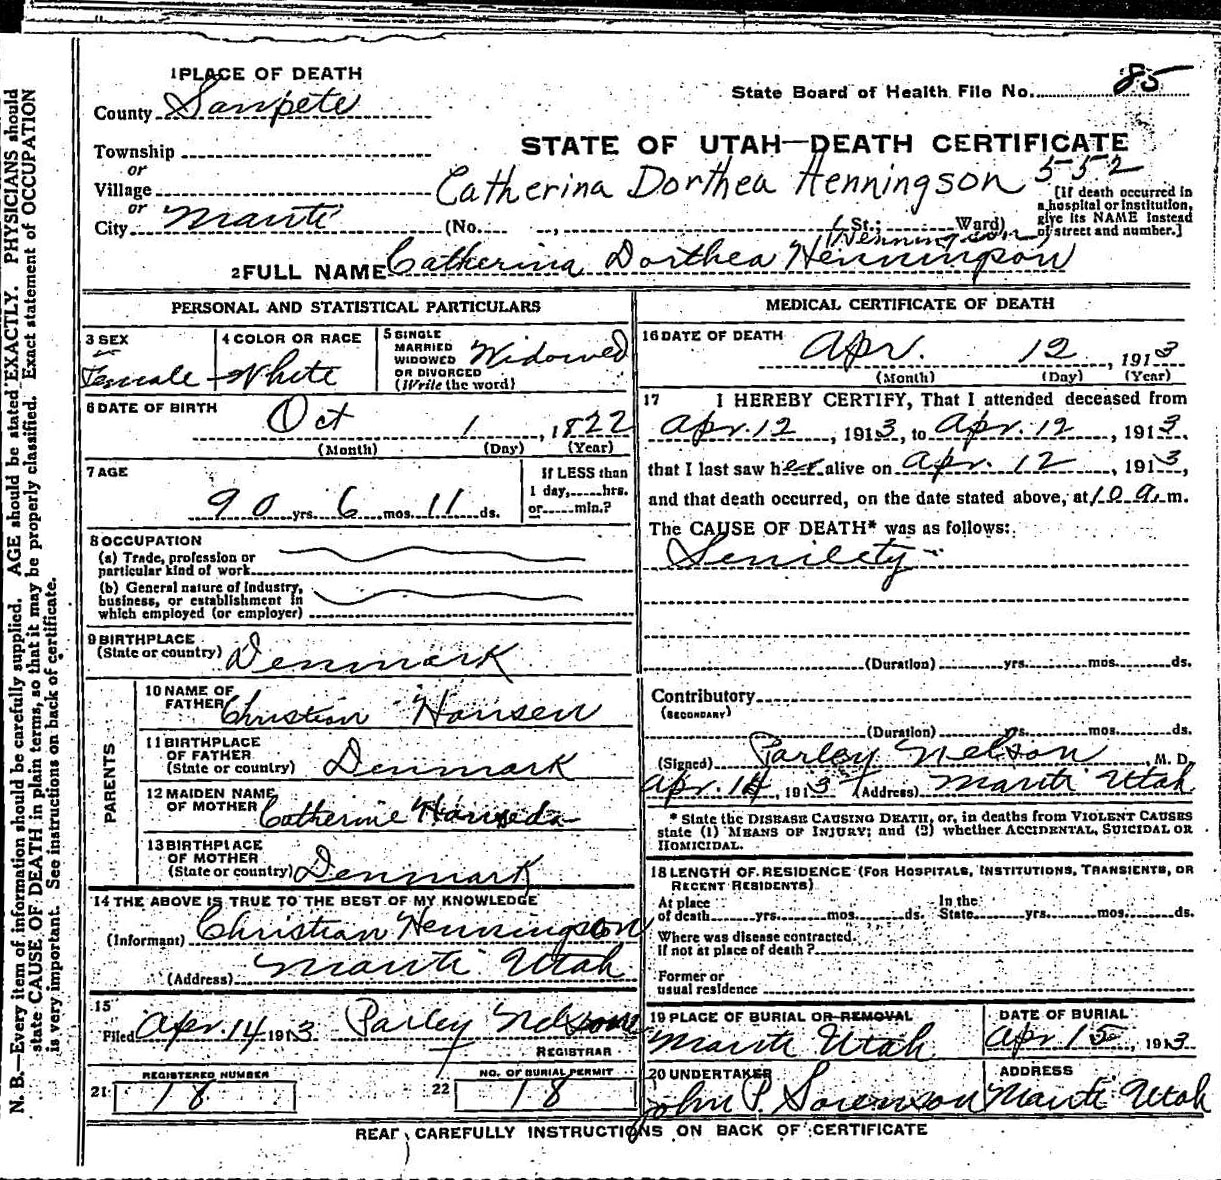 1 PLACE OF DEATH
County Sanpete
State Board of Health File No. 85
STATE OF UTAH—DEATH CERTIFICATE
Township
or
Village
Catherina Dorthea Henningson 552
or
City Manti (No. , St.; Ward)
[If death occurred in
a hospital or institution,
give its NAME instead
of street and number.]
(Henningson)
2 FULL NAME Catherina Dorthea Henningson
PERSONAL AND STATISTICAL PARTICULARS
3 SEX
Female
4 COLOR OR RACE
White
5 SINGLE
MARRIED
WIDOWED
OR DIVORCED
(Write the word)
Widowed
6 DATE OF BIRTH
Oct 1, 1822
(Month) (Day) (Year)
7 AGE
90 yrs. 6 mos. 11 ds.
If LESS than
1 day, hrs.
or min.?
8 OCCUPATION
(a) Trade, profession or
particular kind of work
(b) General nature of industry,
business, or establishment in
which employed (or employer)
9 BIRTHPLACE
(State or country) Denmark
PARENTS
10 NAME OF
FATHER Christian Hansen
11 BIRTHPLACE
OF FATHER
(State or country) Denmark
12 MAIDEN NAME
OF MOTHER Catherine
13 BIRTHPLACE
OF MOTHER
(State or country) Denmark
14 THE ABOVE IS TRUE TO THE BEST OF MY KNOWLEDGE
(Informant) Christian Henningson
(Address) Manti Utah
15
Filed Apr. 14 1913 Parley Nelson
REGISTRAR
REGISTERED NUMBER
21 18
NO. OF BURIAL PERMIT
22 18
MEDICAL CERTIFICATE OF DEATH
16 DATE OF DEATH
Apr. 12, 1913
(Month) (Day) (Year)
17 I HEREBY CERTIFY, That I attended deceased from
Apr. 12, 1913, to Apr. 12, 1913,
that I last saw her alive on Apr. 12, 1913,
and that death occurred, on the date stated above, at 10 a. m.
The CAUSE OF DEATH* was as follows:
Senilety
(Duration) yrs. mos. ds.
Contributory
(SECONDARY)
(Duration) yrs. mos. ds.
(Signed) Parley Nelson, M. D.
Apr. 14, 1913 (Address) Manti Utah
* State the DISEASE CAUSING DEATH, or, in deaths from VIOLENT CAUSES
state (1) MEANS OF INJURY; and (2) whether ACCIDENTAL, SUICIDAL OR
HOMICIDAL.
18 LENGTH OF RESIDENCE (FOR HOSPITALS, INSTITUTIONS, TRANSIENTS, OR
RECENT RESIDENTS)
At place
of death yrs. mos. ds.
In the
State yrs. mos. ds.
Where was disease contracted
if not at place of death?
Former or
usual residence
19 PLACE OF BURIAL OR REMOVAL
Manti Utah
DATE OF BURIAL
Apr 15, 1913
20 UNDERTAKER
John P. Sorenson
ADDRESS
Manti Utah
READ CAREFULLY INSTRUCTIONS ON BACK OF CERTIFICATE
N. B.—Every item of information should be carefully supplied. AGE should be stated EXACTLY. PHYSICIANS should
state CAUSE OF DEATH in plain terms, so that it may be properly classified. Exact statement of OCCUPATION
is very important. See instructions on back of certificate.